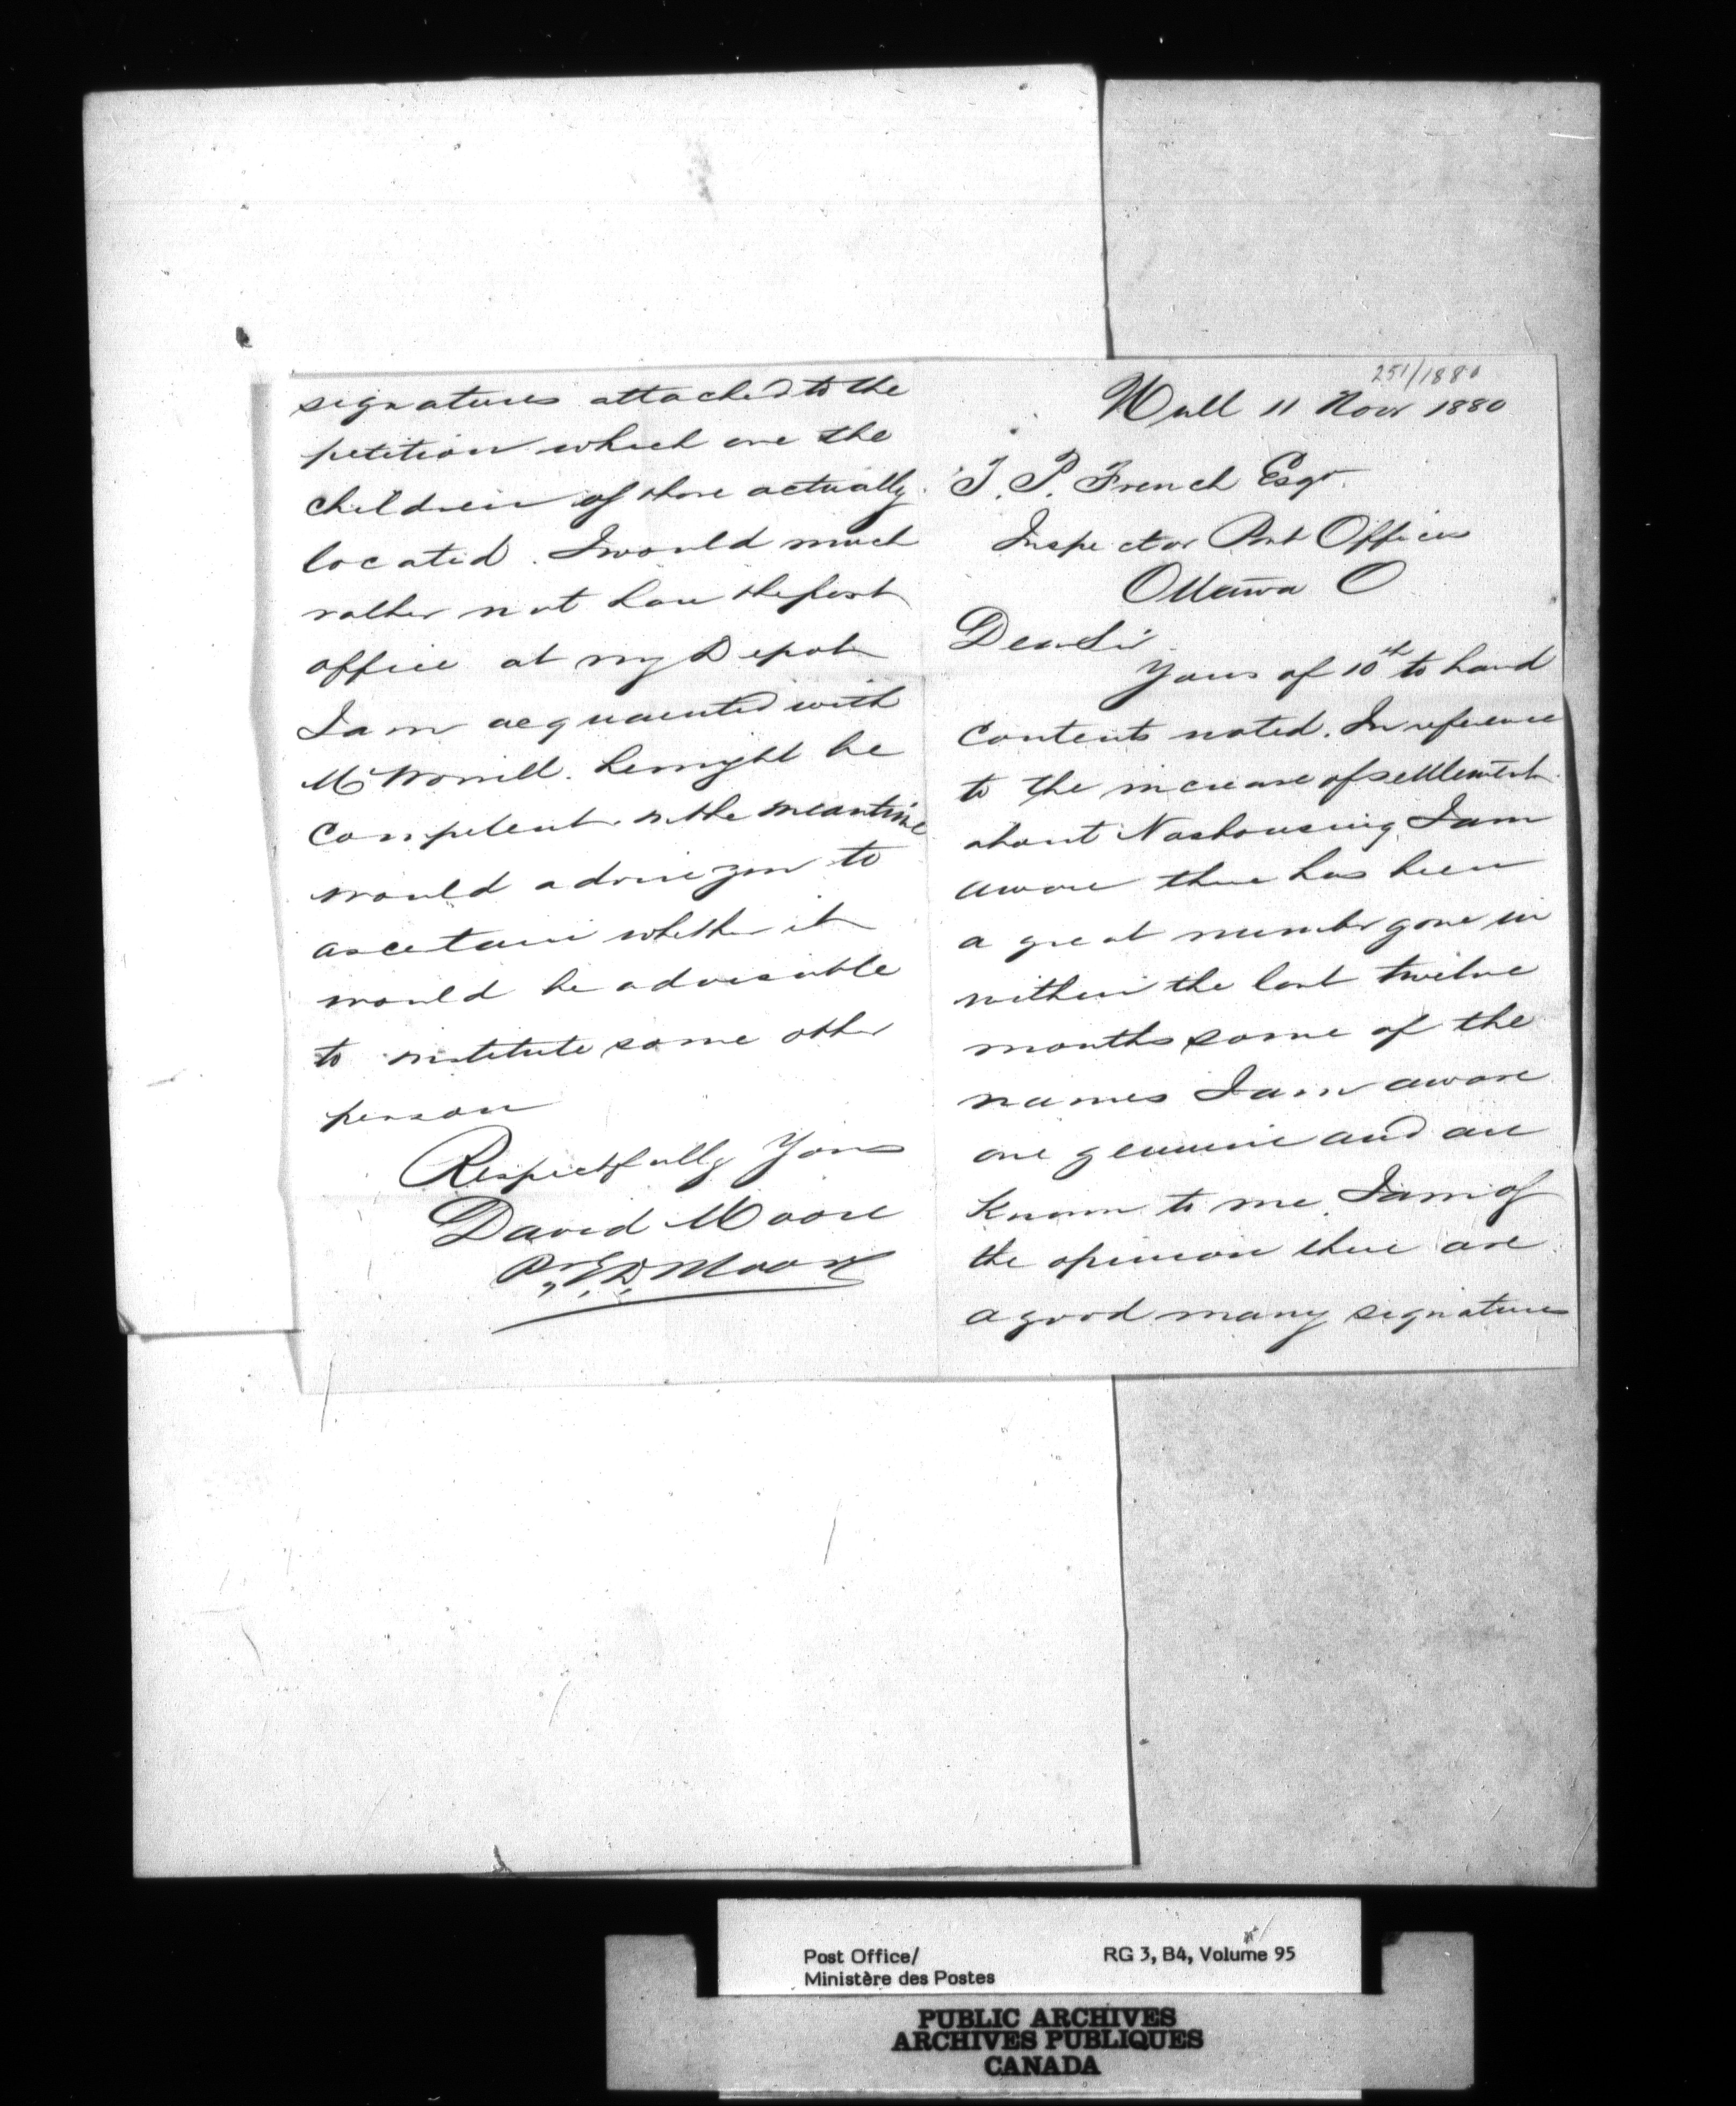 251/1880
Hull 11 Novr 1880
T. P. French Esqr.
Inspector Post Offices
Ottawa O
Dear Sir
Yours of 10th to hand
contents noted. In reference
to the increase of settlement
about Nosbonsing I am
aware there has been
a great number gone in
within the last twelve
months some of the
names I am aware
are genuine and are
known to me. I am of
the opinion there are
a good many signatures
signatures attached to the
petition which are the
children of those actually
located. I would much
rather not have the post
office at my Depot
I am acquainted with
he might be
competent in the meantime
would advise you to
ascertain whether it
would be adviseable
to institute some other
person
Respectfully Yours
David Moore
Moore
Post Office/
Ministère des Postes
RG 3, B4, Volume 95
PUBLIC ARCHIVES
ARCHIVES PUBLIQUES
CANADA